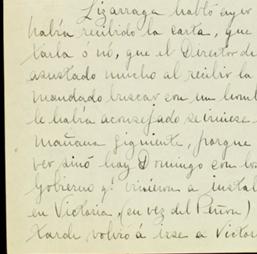 Lizarraga habló ayer
había recibido la carta, que
xarla ó nó, que el Director de
asustado mucho al recibir la
mandado buscar con un hombre
le había aconsejado se
mañana siguiente, porque
ver sinó hoy Domingo con los
Gobierno q! vinieron a instal
en Victoria, (en vez del Peñon)
tarde, volvió á irse a Victori